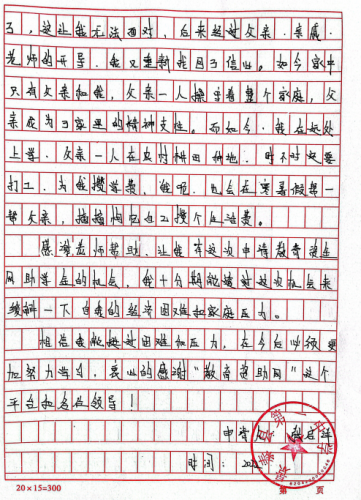 了，这让我无法面对，后来经过父亲、亲属、
老师的开导，我又重新找回了信心。如今家中
只有父亲和我，父亲一人撑着整个家庭，父
亲成为了家里的精神支柱。而如今，我在远处
上学，父亲一人在农村耕田种地，时不时还要
打工，为我攒学费，我呢，也会在寒暑假帮一
帮父亲，插插秧也可以攒个生活费。
感谢老师帮助，让我有这次申请教育资
网助学金的机会，我十分期能通过这次机会来
缓解一下自我的经济困难和家庭压力。
相信我能挺过困难和压力，在今后必须更
加努力学习，衷心的感谢“教育资助网”这个
平台和各位领导！
申请
时间：202
20×15=300
第 页